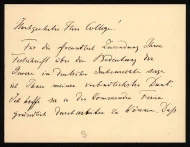 Hochgeehrter Herr College!
Für die freundliche Zusendung Ihrer
Festschrift über die Bedeutung der
in deutscher sage
ich Ihnen meinen verbindlichsten Dank.
Ich hoffe sie in den kommenden Ferien
gründlich durcharbeiten zu können. Dass